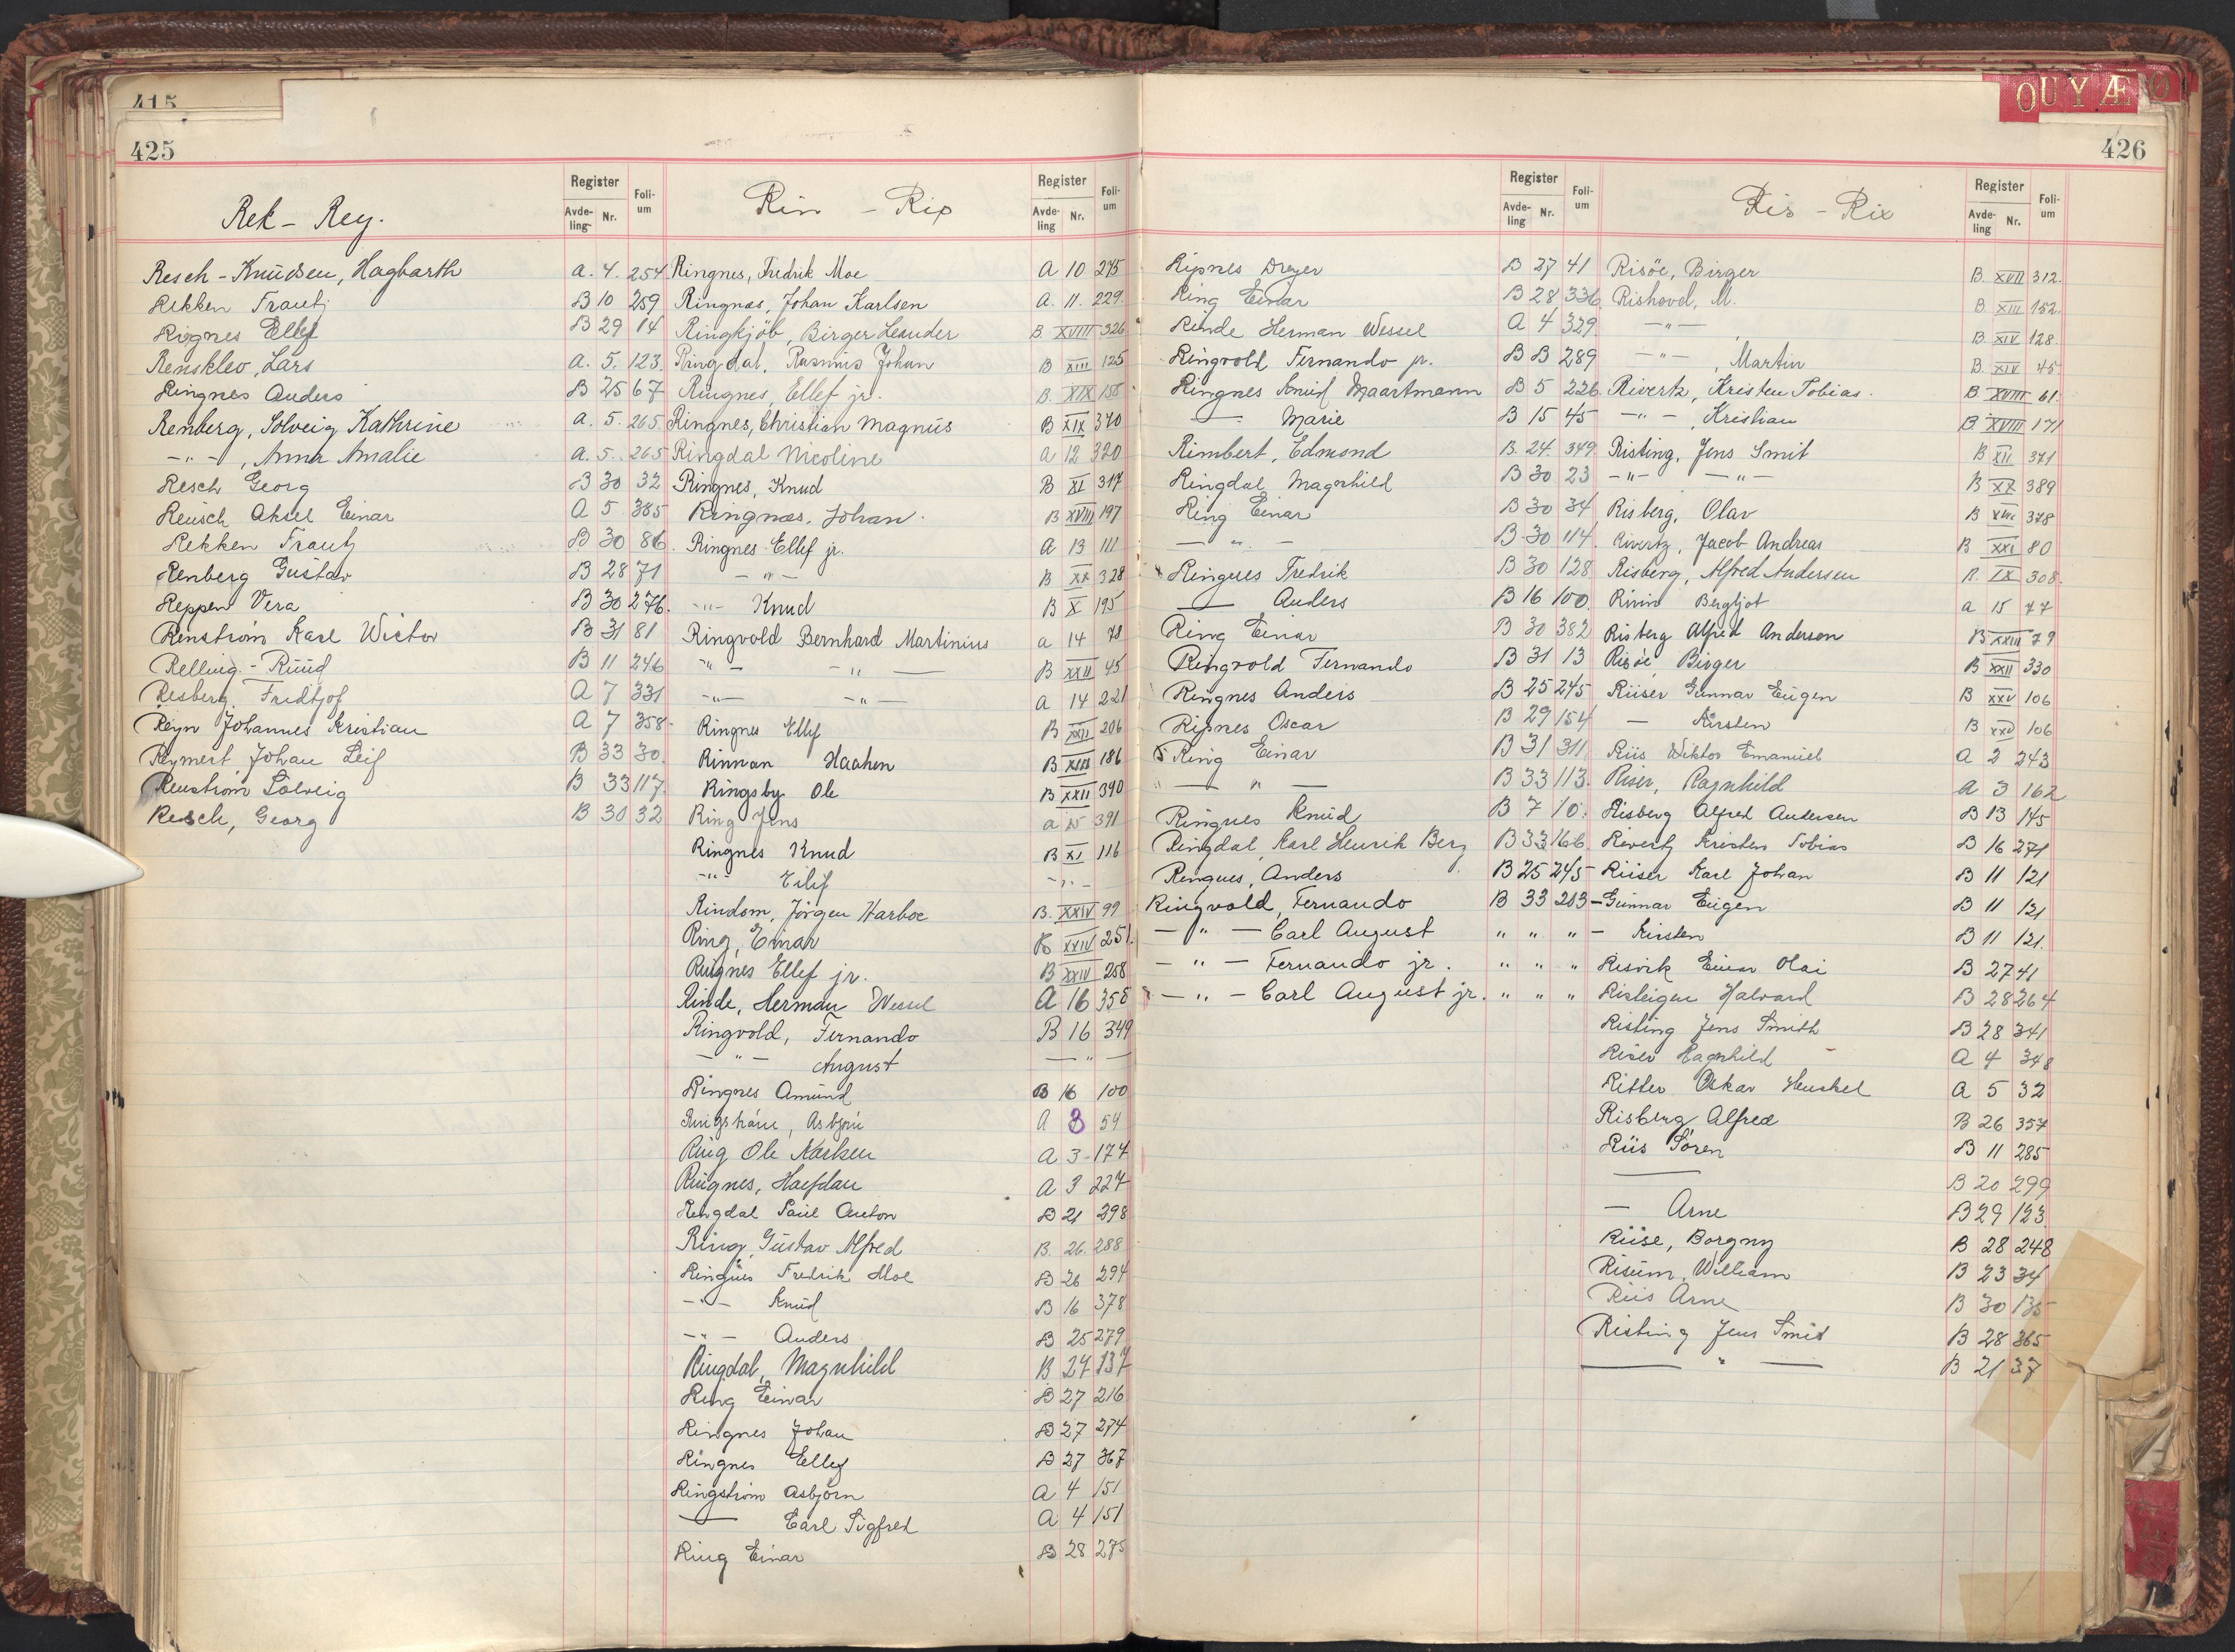 415
425
Register
Foli-um
Avde-ling
Nr.
Rek - Rey.
Resch - Knudsen, Hagbarth a. 4. 254
Rekken Frantz B 10 259
Rignes Ellef B 29 14
Rensklev, Lars a. 5. 123.
Ringnes Anders B 25 67
Renberg, Solveig Kathrine a. 5. 265.
-"- , Anna Amalie a. 5. 265
Resch Georg B 30 32
Reusch Aksel Einar A 5 385
Rekken Frantz B 30 86.
Renberg Gustav B 28 71
Reppen Vera B 30 276.
Renström Karl Victor B 31 81
Relling - Ruud B 11 246
Resberg Fridtjof A 7 331
Reyn Johannes Kristian A 7 358
Reymert Johan Leif B 33 30.
Renström Solveig B 33 117
Resch, Georg B 30 32
Register
Foli-um
Avde-ling
Nr.
Rin - Rip
Ringnes, Fredrik Moe A 10 275
Ringnæs, Johan Karlsen A. 11. 229.
Ringkjöb, Birger Leander B. XVIII 326
Ringdal, Rasmus Johan B XIII 125
Ringnes, Ellef jr. B. XIX 155
Ringnes, Christian Magnus B XIX 340
Ringdal Nicoline a 12 320
Ringnes, Knud B XI 317
Ringnæs, Johan. B XVIII 197
Ringnes Ellef jr. A 13 111
-"- B XX 328
-"- Knud B X 195
Ringvold Bernhard Martinius a 14 78
-"- -"- B XXII 45
-"- -"- a 14 221
Ringnes Ellef B XXII 206
Rinnan Haaken B XXIII 186
Ringsby Ole B XXII 390
Ring Jens a 15 391
Ringnes Knud B XI 116
-"- Eilif -"-
Rindom, Jörgen Harboe B. XXIV 99
Ring, Einar B XXIV 251.
Ringnes Ellef jr. B XXIV 258
Rinde, Herman Wessel A 16 358
Ringvold, Fernando B 16 349
-"- August -"-
Ringnes Amund B 16 100
Ringström, Asbjörn A 3 54
Ring Ole A 3 174
Ringnes, Halfdan A 3 227
Ringdal Paul Anton B 21 298
Ring, Gustav Alfred B. 26. 288
Ringnes Fredrik Moe B 26 294
-"- Knud B 16 378
-"- Anders B 25 279
Ringdal, Magnhild B 27 137
Ring Einar B 27 216
Ringnes Johan B 27 274
Ringnes Ellef B 27 367
Ringström Asbjörn A 4 151
— Carl Sigfred A 4 151
Ring Einar B 28 275
O U Y Æ Ø
426
Register
Foli-um
Avde-ling
Nr.
Ripnes Dreyer B 27 41
Ring Einar B 28 336
Rinde Herman Wessel A 4 329
Ringvold Fernando jr. B B 289
Ringnes Knud Maartmann B 5 226.
— Marie B 15 45
Rimbert, Edmond B. 24. 349
Ringdal Magnhild B 30 23
Ring Einar B 30 34
— " — B 30 114.
Ringnes Fredrik B 30 128
— Anders B 16 100.
Ring Einar B 30 382
Ringvold Fernando B 31 13
Ringnes Anders B 25 245
Ripnes Oscar B 29 154
Ring Einar B 31 311
" — " — B 33 113.
Ringnes Knud B 7 10.
Ringdal, Karl Henrik Berg B 33 166.
Ringnes, Anders B 25 245
Ringvold, Fernando B 33 203
— " — Carl August " " "
— " — Fernando jr. " " "
— " — Carl August jr. " " "
Register
Foli-um
Avde-ling
Nr.
Ris - Rix
Risöe, Birger B. XVII 312.
Rishovd, M. B. XIII 152.
-"- B. XIV 128.
-"- , Martin B. XIV 45
Rivertz, Kristen Tobias. B. XVIII 61.
-"- , Kristian B. XVIII 171
Risting, Jens Smit B XII 371
-"- -"- B XX 389
Risberg, Olav B XVII 378
Rivertz, Jacob Andreas B XXI 80
Risberg, Alfred Andersen B. IX 308.
Rivin Bergljot a 15 77
Risberg Alfred Andersen B XXIII 79
Risöe Birger B XXII 330
Riiser Gunnar Eugen B XXV 106
— Kirsten B XXV 106
Riis Wiktor Emanuel A 2 243
Riser, Ragnhild A 3 162
Risberg Alfred Andersen B 13 145
Rivertz Kristen Tobias B 16 271
Riiser Karl Johan B 11 121
— Gunnar Eugen B 11 121
— Kirsten B 11 121.
Risvik Einar Olai B 27 41
Risteigen Halvard B 28 264
Risting Jens Smith B 28 341
Riser Ragnhild A 4 348
Ritter Oskar Henkel A 5 32
Risberg Alfred B 26 357
Riis Sören B 11 285
— B 20 299
— Arne B 29 123
Riise, Borgny B 28 248
Risum, William B 23 34
Riis Arne B 30 135
Risting Jens Smit B 28 365
— " — B 21 37